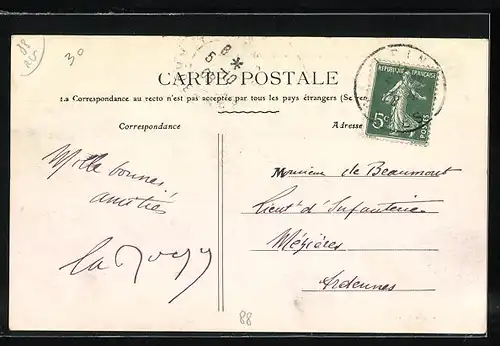 88
30
8
5 -10
CARTE POSTALE
La Correspondance au recto n'est pas acceptée par tous les pays étrangers (Se ren
RÉPUBLIQUE FRANÇAISE
5c
POSTES
Correspondance
Adresse
Mille bonnes
amitiés
Monsieur de Beaumont
Lieutt d'Infanterie
Mézières
Ardennes
88